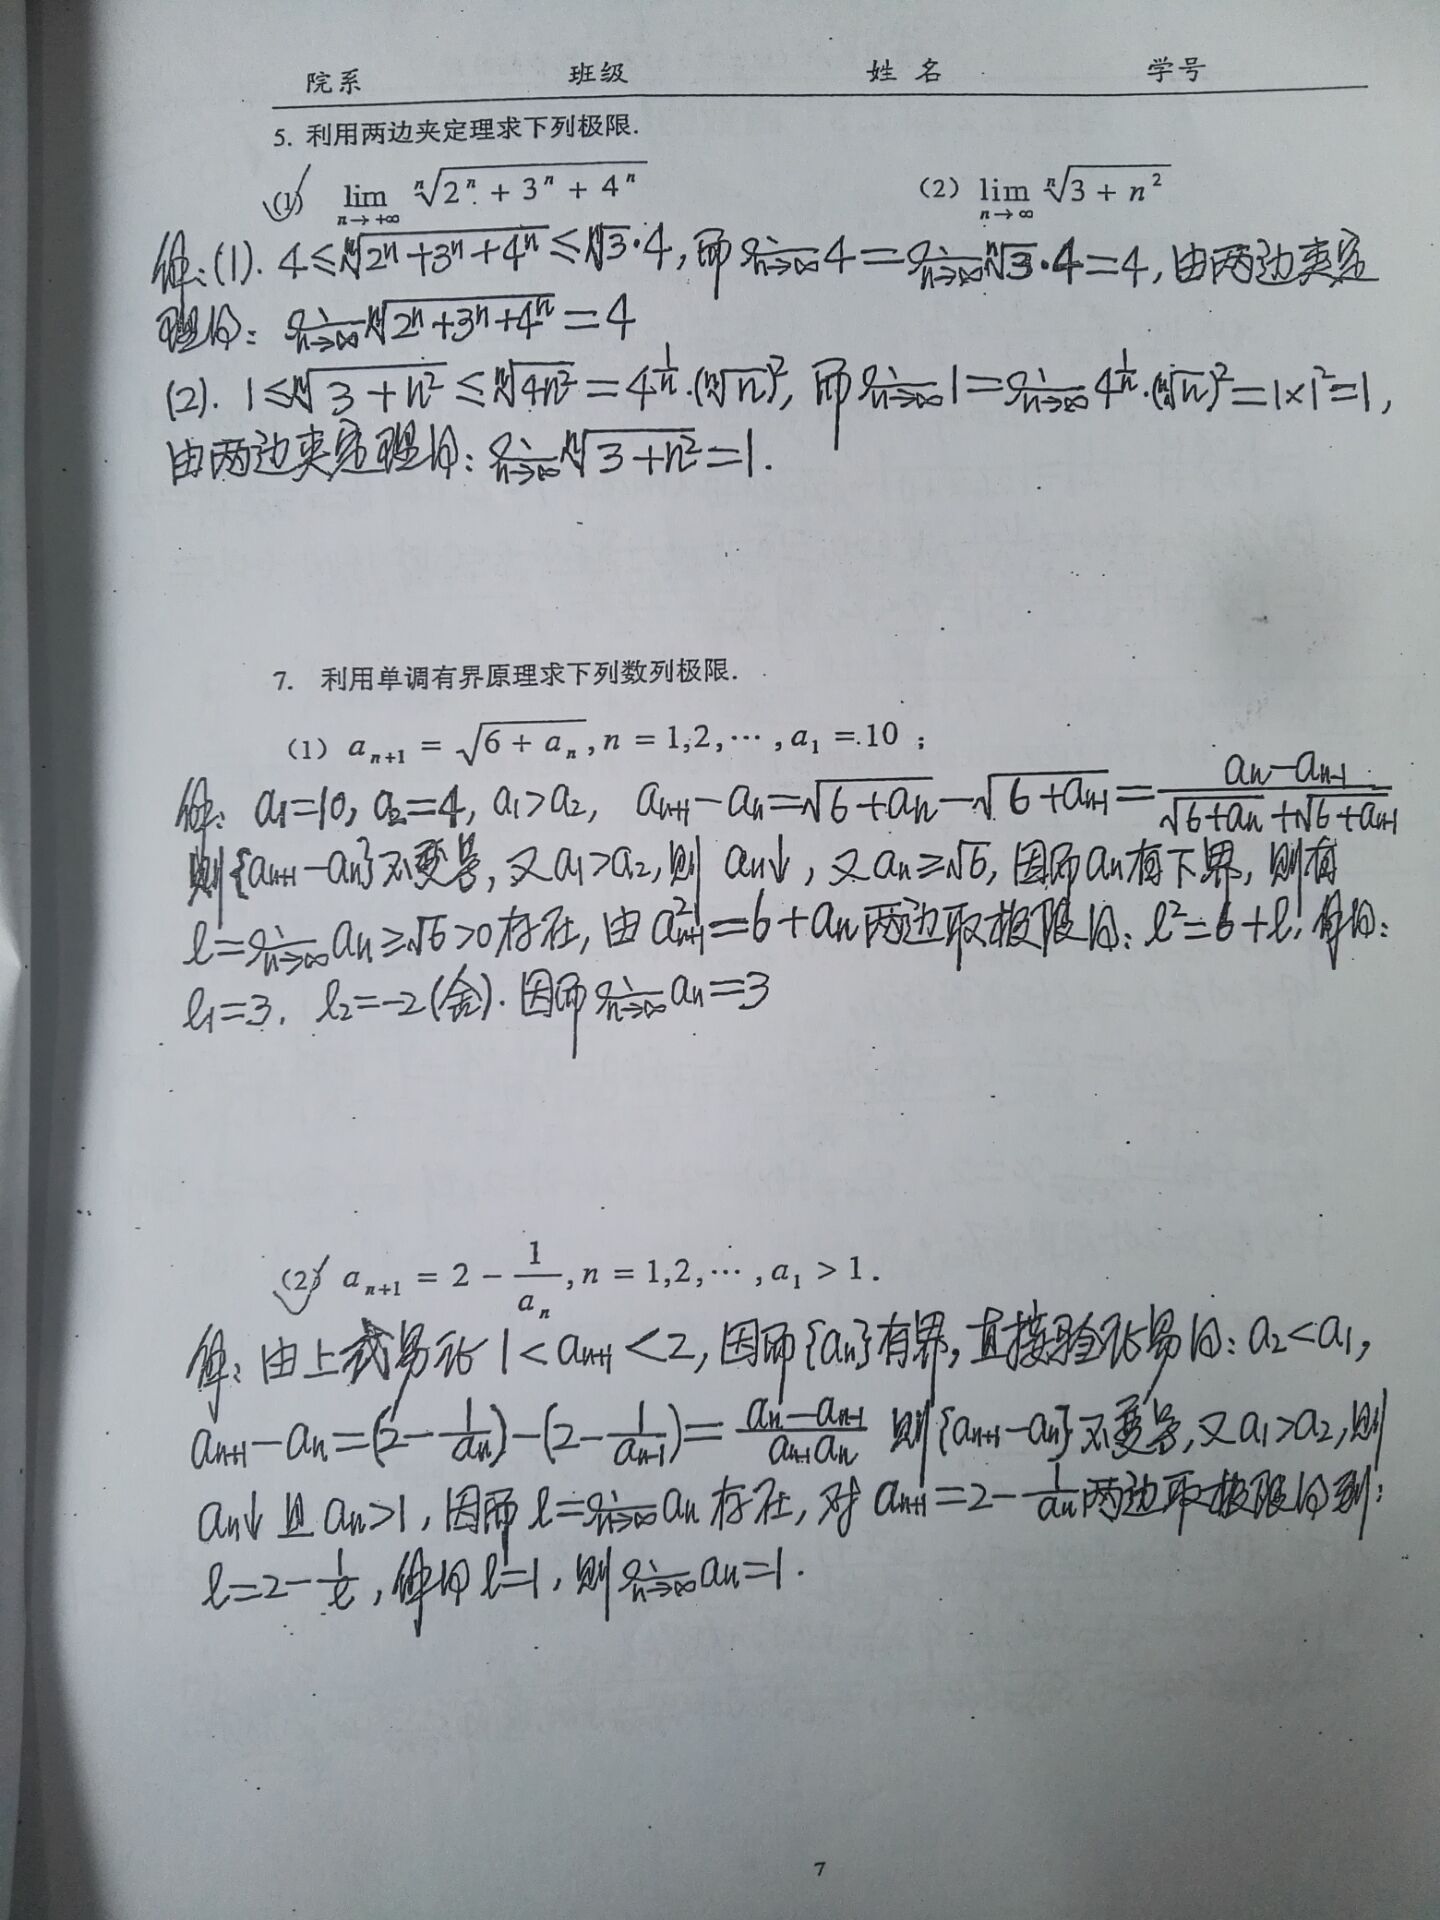 院系 班级 姓名 学号
5. 利用两边夹定理求下列极限.
(1) lim n→+∞ ⁿ√(2ⁿ + 3ⁿ + 4ⁿ) (2) lim n→∞ ⁿ√(3 + n²)
解:(1). 4≤ⁿ√(2ⁿ+3ⁿ+4ⁿ)≤ⁿ√3·4, 而 lim n→∞ 4=lim n→∞ ⁿ√3·4=4, 由两边夹定
理得: lim n→∞ ⁿ√(2ⁿ+3ⁿ+4ⁿ)=4
(2). 1≤ⁿ√(3+n²)≤ⁿ√(4n²)=4^(1/n)·(ⁿ√n)², 而 lim n→∞ 1=lim n→∞ 4^(1/n)·(ⁿ√n)²=1×1²=1,
由两边夹定理得: lim n→∞ ⁿ√(3+n²)=1.
7. 利用单调有界原理求下列数列极限.
(1) aₙ₊₁ = √(6 + aₙ), n = 1,2,⋯, a₁ = 10 ;
解: a₁=10, a₂=4, a₁>a₂, aₙ₊₁-aₙ=√(6+aₙ)-√(6+aₙ₋₁)=(aₙ-aₙ₋₁)/(√(6+aₙ)+√(6+aₙ₋₁))
则{aₙ₊₁-aₙ}不变号, 又a₁>a₂, 则 aₙ↓, 又aₙ≥√6, 因而aₙ有下界, 则有
l=lim n→∞ aₙ≥√6>0存在, 由a²ₙ₊₁=6+aₙ两边取极限得: l²=6+l, 解得:
l₁=3, l₂=-2(舍). 因而lim n→∞ aₙ=3
(2) aₙ₊₁ = 2 - 1/aₙ, n = 1,2,⋯, a₁ > 1.
解: 由上式易证 1<aₙ₊₁<2, 因而{aₙ}有界, 直接验证易得: a₂<a₁,
aₙ₊₁-aₙ=(2-1/aₙ)-(2-1/aₙ₋₁)=(aₙ-aₙ₋₁)/(aₙ₋₁aₙ) 则{aₙ₊₁-aₙ}不变号, 又a₁>a₂, 则
aₙ↓且aₙ>1, 因而 l=lim n→∞ aₙ 存在, 对 aₙ₊₁=2-1/aₙ两边取极限得到:
l=2-1/l, 解得 l=1, 则lim n→∞ aₙ=1.
7